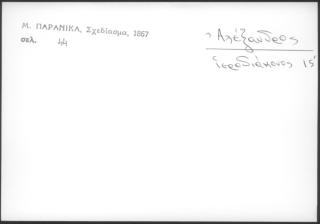 Μ. ΠΑΡΑΝΙΚΑ, Σχεδίασμα, 1867
σελ. 44
Ἀλέξανδρος
ἱεροδιάκονος 15'